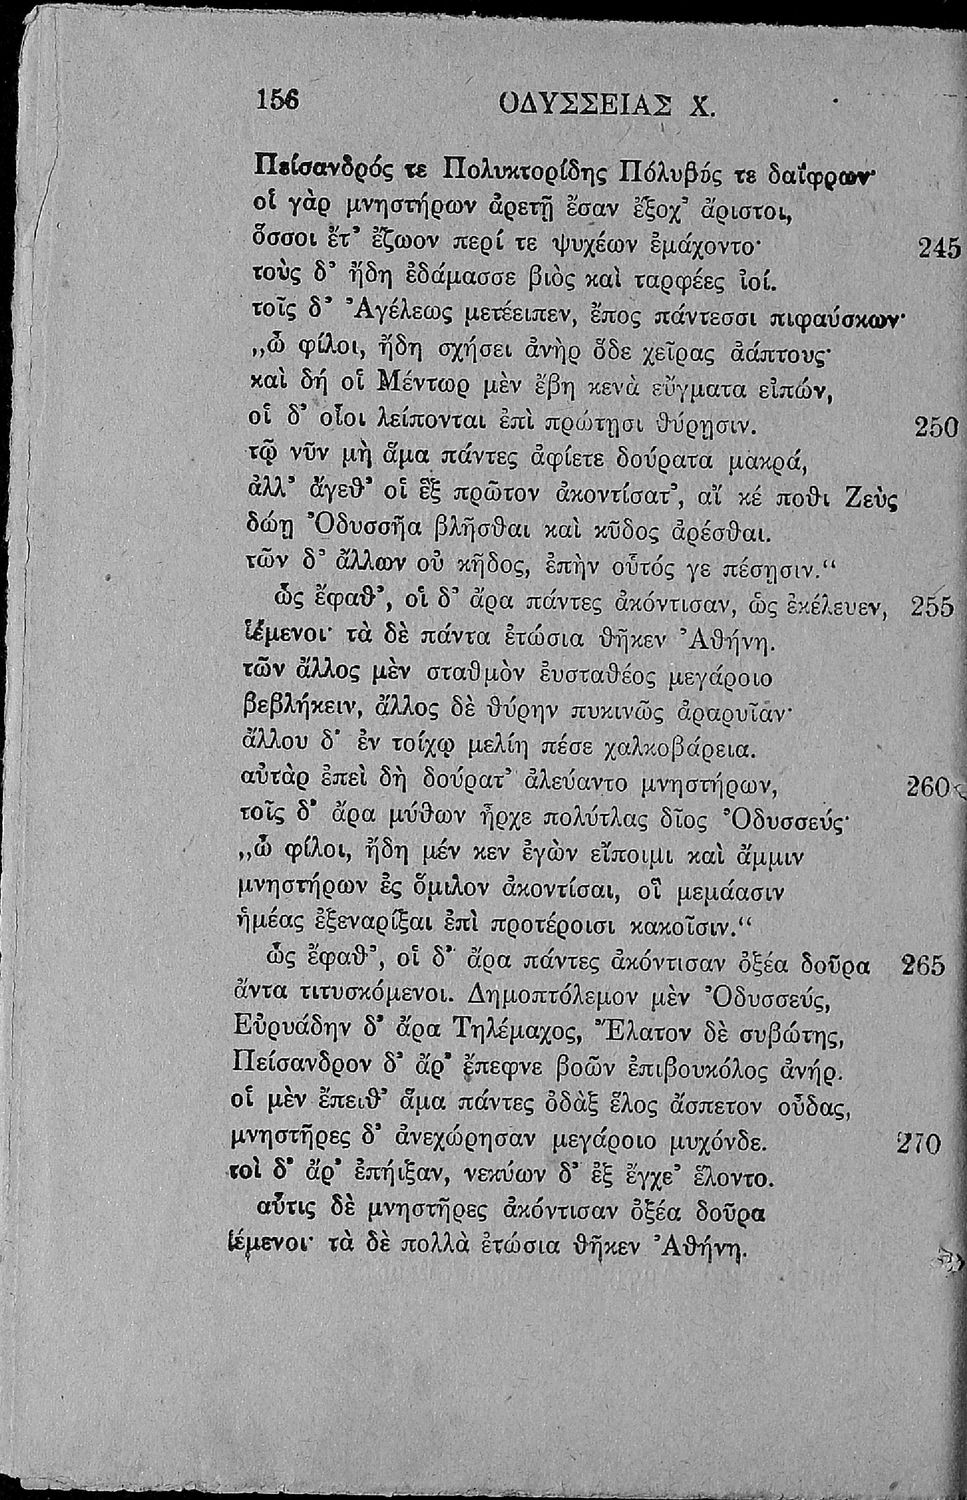 156 ΟΔΥΣΣΕΙΑΣ Χ.
Πείσανδρός τε Πολυκτορίδης Πόλυβός τε δαΐφρων·
οἳ γὰρ μνηστήρων ἀρετῇ ἔσαν ἔξοχʼ ἄριστοι,
ὅσσοι ἔτʼ ἔζωον περί τε ψυχέων ἐμάχοντο· 245
τοὺς δʼ ἤδη ἐδάμασσε βιὸς καὶ ταρφέες ἰοί.
τοῖς δʼ Ἀγέλεως μετέειπεν, ἔπος πάντεσσι πιφαύσκων·
„ὦ φίλοι, ἤδη σχήσει ἀνὴρ ὅδε χεῖρας ἀάπτους·
καὶ δή οἱ Μέντωρ μὲν ἔβη κενὰ εὔγματα εἰπών,
οἱ δʼ οἶοι λείπονται ἐπὶ πρώτῃσι θύρῃσιν. 250
τῷ νῦν μὴ ἅμα πάντες ἀφίετε δούρατα μακρά,
ἀλλʼ ἄγεθʼ οἱ ἓξ πρῶτον ἀκοντίσατʼ, αἴ κέ ποθι Ζεὺς
δώῃ Ὀδυσσῆα βλῆσθαι καὶ κῦδος ἀρέσθαι.
τῶν δʼ ἄλλων οὐ κῆδος, ἐπὴν οὗτός γε πέσῃσιν.“
ὣς ἔφαθʼ, οἱ δʼ ἄρα πάντες ἀκόντισαν, ὡς ἐκέλευεν, 255
ἱέμενοι· τὰ δὲ πάντα ἐτώσια θῆκεν Ἀθήνη.
τῶν ἄλλος μὲν σταθμὸν ἐυσταθέος μεγάροιο
βεβλήκειν, ἄλλος δὲ θύρην πυκινῶς ἀραρυῖαν·
ἄλλου δʼ ἐν τοίχῳ μελίη πέσε χαλκοβάρεια.
αὐτὰρ ἐπεὶ δὴ δούρατʼ ἀλεύαντο μνηστήρων, 260
τοῖς δʼ ἄρα μύθων ἦρχε πολύτλας δῖος Ὀδυσσεύς·
„ὦ φίλοι, ἤδη μέν κεν ἐγὼν εἴποιμι καὶ ἄμμιν
μνηστήρων ἐς ὅμιλον ἀκοντίσαι, οἳ μεμάασιν
ἡμέας ἐξεναρίξαι ἐπὶ προτέροισι κακοῖσιν.“
ὣς ἔφαθʼ, οἱ δʼ ἄρα πάντες ἀκόντισαν ὀξέα δοῦρα 265
ἄντα τιτυσκόμενοι. Δημοπτόλεμον μὲν Ὀδυσσεύς,
Εὐρυάδην δʼ ἄρα Τηλέμαχος, Ἔλατον δὲ συβώτης,
Πείσανδρον δʼ ἄρʼ ἔπεφνε βοῶν ἐπιβουκόλος ἀνήρ.
οἱ μὲν ἔπειθʼ ἅμα πάντες ὀδὰξ ἕλον ἄσπετον οὖδας,
μνηστῆρες δʼ ἀνεχώρησαν μεγάροιο μυχόνδε. 270
τοὶ δʼ ἄρʼ ἐπήιξαν, νεκύων δʼ ἐξ ἔγχεʼ ἕλοντο.
αὖτις δὲ μνηστῆρες ἀκόντισαν ὀξέα δοῦρα
ἱέμενοι· τὰ δὲ πολλὰ ἐτώσια θῆκεν Ἀθήνη.